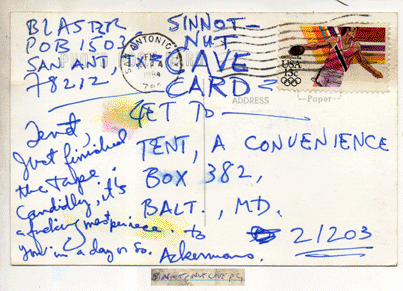 BLASTER
POB 1503
SAN ANT. TX
78212
SAN ANTONIO
1984
SINNOT-
NUT
CAVE
CARD
USA
13c
ADDRESS
Paper
GET TO
TENT, A CONVENIENCE
BOX 382,
BALT., MD.
21203
Tent,
Just finished
the tape;
candidly, it's
a fucking masterpiece. to
you in a day or so. Ackermans.